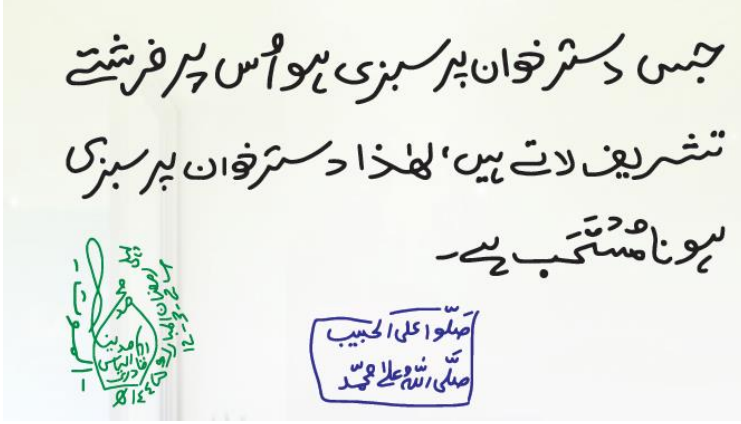 جس دسترخوان پر سبزی ہو اُس پر فرشتے
تشریف لاتے ہیں، لھٰذا دسترخوان پر سبزی
ہونا مُستَحَب ہے۔
صَلُّوا علی الحبیب
صلَّی اللہُ علیٰ محمّد